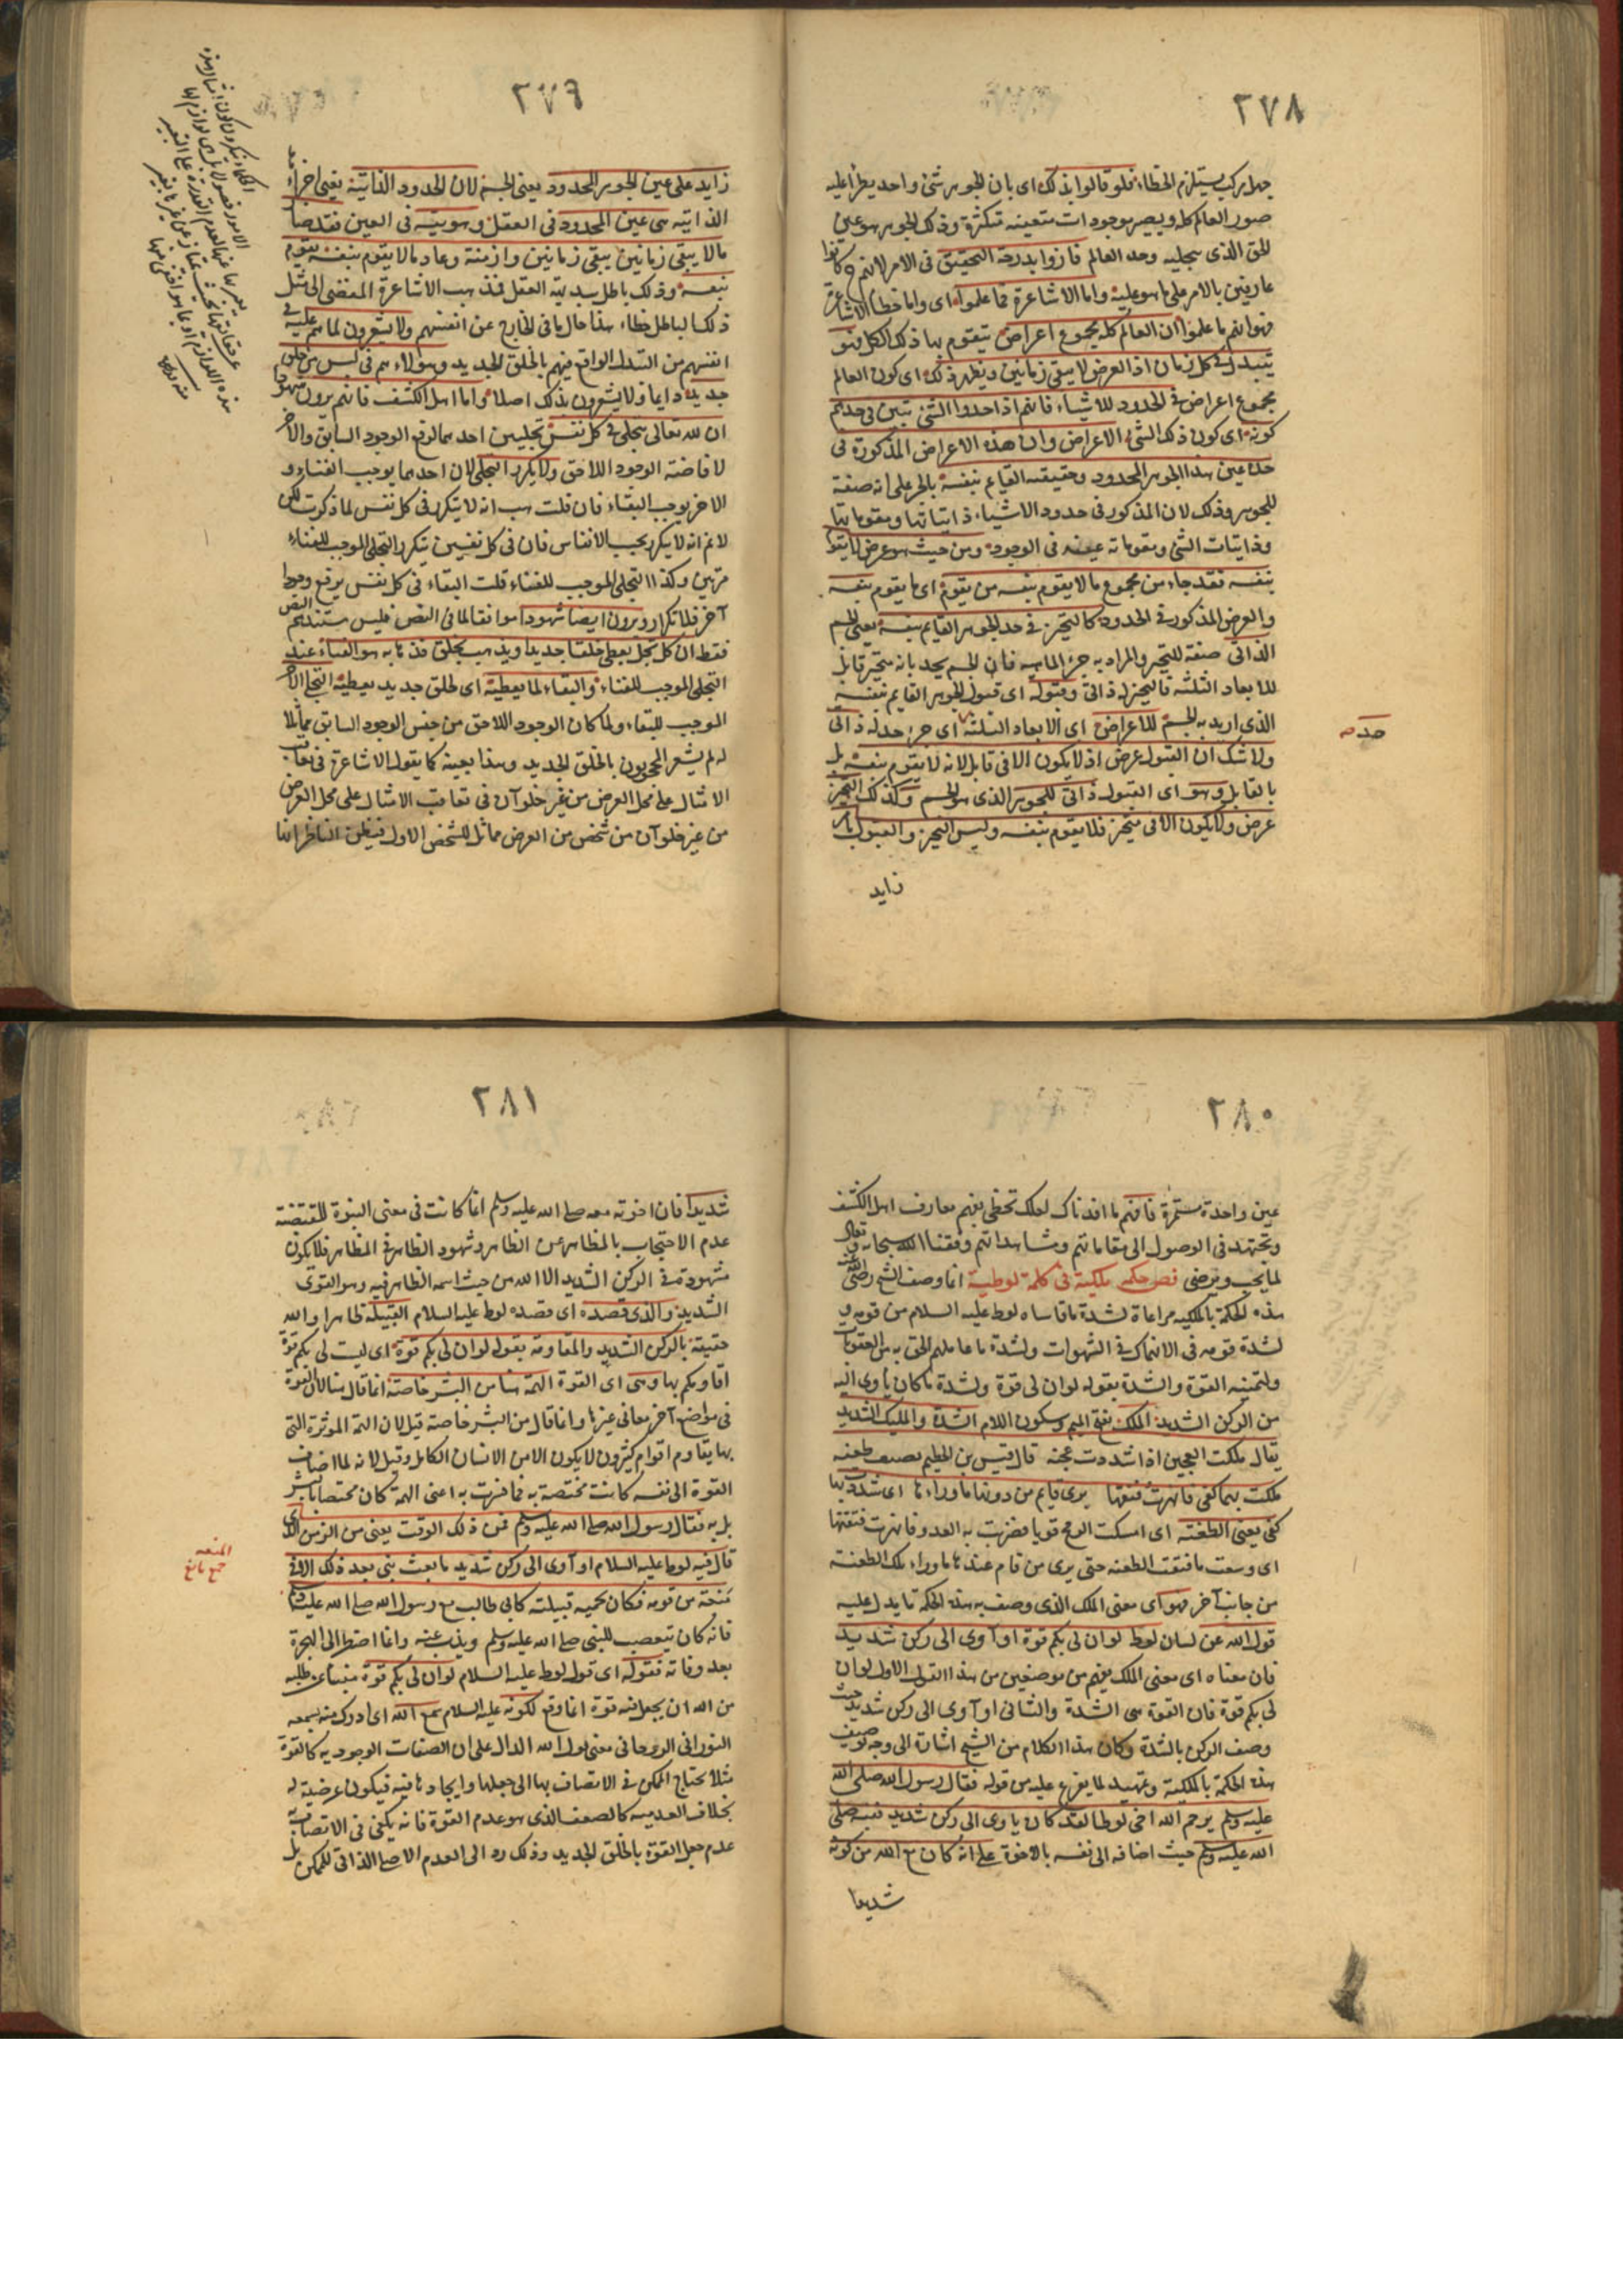 ٢٧٨
جهل مركب يستلزم الخطاء فلو قالوا بذلك اى بان الجوهر شئ واحد يطرأ عليه
صور العالم كله ويصير موجودات متعينه متكثرة وذلك الجوهر هو عين
الحق الذى بتجليه وجد العالم فازوا بدرجة التحقيق فى الامر لانهم ح كانوا
عارفين بالامر على ما هو عليه واما الاشاعرة فما علموا اى واما خطأ الاشاعرة
فهو انهم ما علموا ان العالم كله مجموع اعراض يتقوم بها ذلك الكل فهو
يتبدل فى كل زمان اذ العرض لا يبقى زمانين ويظهر ذلك اى كون العالم
مجموع اعراض فى الحدود للاشياء فانهم اذا حدوا الشئ تبين فى حدهم
كونه اى كون ذلك الشئ الاعراض وان هذه الاعراض المذكورة فى
حده عين هذا الجوهر المحدود وحقيقته القايم بنفسه بالجر على انه صفة
للجوهر وذلك لان المذكور فى حدود الاشياء ذاتياتها ومقوماتها
وذاتيات الشئ ومقوماته عينه فى الوجود ومن حيث هو عرض لا يقوم
بنفسه فقد جاء من مجموع ما لا يقوم بنفسه من يقوم اى ما يقوم بنفسه
والعرض المذكور فى الحدود كالتحيز فى حد الجوهر القايم بنفسه يعنى الجسم
الذاتى صفة للتحيز والمراد به جزء الماهيه فان الجسم يحد بانه متحيز قابل
للابعاد الثلثه فالتحيز له ذاتى وقبوله اى قبول الجوهر القايم بنفسه
الذى اريد به الجسم للاعراض اى الابعاد الثلثة اى جزء حد له ذاتى
ولا شك ان القبول عرض اذ لا يكون الا فى قابل لانه لا يقوم بنفسه بل
بالقابل وهو اى القبول ذاتى للجوهر الذى هو الجسم وكذلك التحيز
عرض ولا يكون الا فى متحيز فلا يقوم بنفسه وليس التحيز والقبول بامر
زايد
حد صح
٢٧٩
زايد على عين الجوهر المحدود يعنى الجسم لان الحدود الذاتية يعنى اجزاء
الذاتيه هى عين المحدود فى العقل وهويته فى العين فقد صار
ما لا يبقى زمانين يبقى زمانين وازمنة وعاد ما لا يقوم بنفسه يقوم
بنفسه وذلك باطل ببديهة العقل فذهب الاشاعرة المفضى الى مثل
ذلك الباطل خطاء هذا حال ما فى الخارج عن انفسهم ولا يشعرون لما هم عليه فى
انفسهم من التبدل الواقع فيهم بالخلق الجديد وهؤلاء هم فى لبس من خلق
جديد دايما ولا يشعرون بذلك اصلا واما اهل الكشف فانهم يرون شهودا
ان الله تعالى يتجلى فى كل نفس بتجليين احدهما لرفع الوجود السابق والاخر
لافاضة الوجود اللاحق ولا يكرر التجلى لان احدهما يوجب الفناء و
الاخر يوجب البقاء فان قلت هب انه لا يتكرر فى كل نفس لما ذكرت لكن
لا نم انه لا يكرر بحسب الانفاس فان فى كل نفسين يتكرر التجلى الموجب للفناء
مرتين وكذا التجلى الموجب للفناء قلت البقاء فى كل نفس يرفع وجودا
آخر فلا تكرار ويرون ايضا شهودا موافقا لما فى النص فليس مستندهم النص
فقط ان كل تجل يعطى خلقا جديدا ويذهب بخلق فذهابه هو الفناء عند
التجلى الموجب للفناء والبقاء لما يعطيه اى لخلق جديد يعطيه التجلى الاخر
الموجب للبقاء ولما كان الوجود اللاحق من جنس الوجود السابق مماثلا
له لم يشعر المحجوبون بالخلق الجديد وهذا بعينه كما يقول الاشاعرة فى تعاقب
الامثال على محل العرض من غير خلو آن فى تعاقب الامثال على محل العرض
من غير خلو آن من شخص من العرض مماثل للشخص الاول فيظن الناظر انها
٢٨٠
عين واحدة مستمرة فافهم ما افدناك لعلك تحظى بفهم معارف اهل الكشف
وتجتهد فى الوصول الى مقاماتهم ومشاهداتهم وفقنا الله سبحانه وتعالى
لما يحب ويرضى فص حكمه ملكية فى كلمة لوطية انما وصف الشيخ رضى الله عنه
هذه الحكمة بالملكيه مراعاة لشدة ما قاساه لوط عليه السلام من قومه و
لشدة قومه فى الانهماك فى الشهوات ولشدة ما عاملهم الحق به من العقوبات
ولتمنيه القوة والشدة بقوله لو ان لى قوة ولشدة ما كان يأوى اليه
من الركن الشديد الملك بفتح الميم وسكون اللام الشدة والمليك الشديد
يقال ملكت العجين اذا شددت عجنه قال قيس بن الخطيم يصف طعنه
ملكت بها كفى فانهرت فتقها يرى قايم من دونها ما وراءها اى شددت بها
كفى يعنى الطعنه اى امسكت الرمح قويا فضربت به العدو فانهرت فتقها
اى وسعت ما فتقت الطعنه حتى يرى من قام عندها ما وراء تلك الطعنة
من جانب آخر فهو اى معنى الملك الذى وصف به هذه الحكمة ما يدل عليه
قول الله عن لسان لوط لو ان لى بكم قوة او آوى الى ركن شديد
فان معناه اى معنى الملك يفهم من موضعين من هذا القول الاول لو ان
لى بكم قوة فان القوة هى الشدة والثانى او آوى الى ركن شديد حيث
وصف الركن بالشدة وكان هذا الكلام من الشيخ اشارة الى وجه توصيف
هذه الحكمة بالملكية وتمهيد لما يفرع عليه من قوله فقال رسول الله صلى الله
عليه وسلم يرحم الله اخى لوطا لقد كان ياوى الى ركن شديد فنبه صلى
الله عليه وسلم حيث اضافه الى نفسه بالاخوة على انه كان مع الله من كونه
شديدا
٢٨١
شديدا فان اخوته معه صلى الله عليه وسلم انما كانت فى معنى النبوة المقتضية
عدم الاحتجاب بالمظاهر عن الظاهر وشهود الظاهر فى المظاهر فلا يكون
مشهوده فى الركن الشديد الا الله من حيث اسمه الظاهر فيه وهو القوى
الشديد والذى قصده اى قصده لوط عليه السلام القبيلة ظاهرا والله
حقيقة بالركن الشديد والمقاومة بقوله لو ان لى بكم قوة اى ليت لى بكم قوة
اقاويكم بها وهى اى القوة الهمة هنا من البشر خاصة انما قال هنا لان القوة
فى مواضع آخر معانى غيرها وانما قال من البشر خاصة قيل لان الهمة المؤثرة التى
بها يقاوم اقوام كثيرون لا يكون الا من الانسان الكامل وقيل لانه لما اضاف
القوة الى نفسه كانت مختصة به فما فسرت به اعنى الهمة كان مختصا بالبشر
بل به فقال رسول الله صلى الله عليه وسلم فمن ذلك الوقت يعنى من الزمن الذى
قال فيه لوط عليه السلام او آوى الى ركن شديد ما بعث نبى بعد ذلك الا فى
منعة من قومه فكان يحميه قبيلته كابى طالب مع رسول الله صلى الله عليه وسلم
فانه كان يتعصب للنبى صلى الله عليه وسلم ويذب عنه وانما اضطر الى الهجرة
بعد وفاته فقوله اى قول لوط عليه السلام لو ان لى بكم قوة منبئا عن طلبه
من الله ان يجعل فيه قوة انما وقع لكونه عليه السلام سمع الله اى ادرك منه بسمعه
النورانى الروحانى معنى قول الله الدال على ان الصفات الوجوديه كالقوة
مثلا يحتاج الممكن فى الاتصاف بها الى جعلها وايجادها فيه فيكون عرضية له
بخلاف العدميه كالضعف الذى هو عدم القوة فانه يكفى فى الاتصاف به
عدم جعل القوة بالخلق الجديد وذلك رد الى العدم الاصلى الذاتى للممكن بل
المنعه
جمع مانع